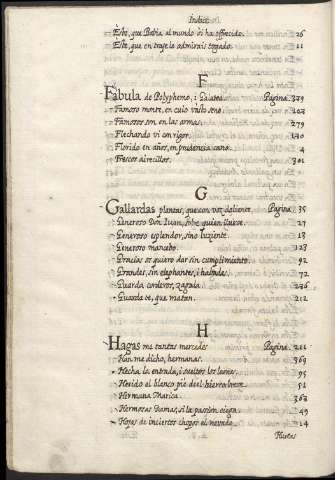 Indice.
Este, que Babia al mundo oi ha offrecido. 26
Este, que en traje lo admirais togado. 11
F
Fabula de Polyphemo, i Galatea. Pagina. 379
Famoso monte, en cuio vasto seno. 102
Famosos son en las armas. 279
Flechando vi con rigor. 140
Florido en años, en prudencia cano. 4
Frescos airecillos. 301
G
Gallardas plantas, que con voz doliente. Pagina. 35
Generoso Don Iuan, sobre quien llueve. 27
Generoso esplendor, sino luziente. 18
Generoso mancebo. 123
Gracias os quiero dar sin cumplimiento. 92
Grandes, sin elephantes, i 72
Guarda corderos, zagala. 236
Guarda te, que matan. 212
H
Hagas me tantas mercedes Pagina. 211
Han me dicho, hermanas. 369
Hecha la entrada, i sueltos los leones. 95
Herido el blanco pie del hierro breve. 51
Hermana Marica. 363
Hermosas Damas, si la passion ciega. 49
Hojas de inciertos chopos el nevado. 14